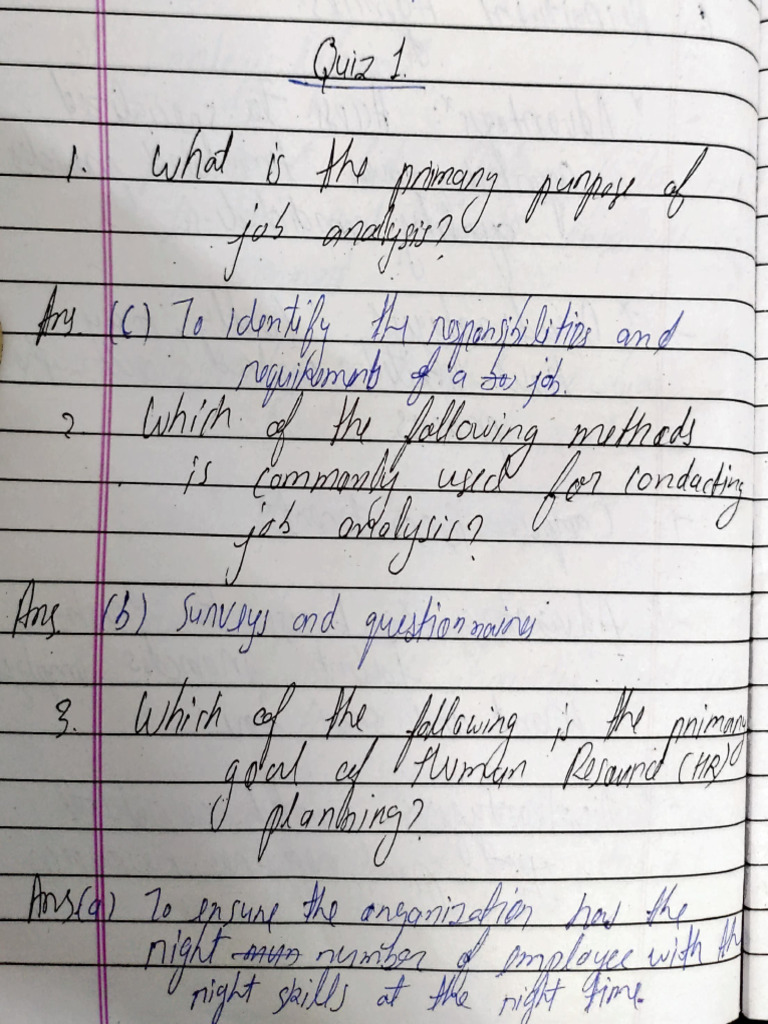 Quiz 1.
1. What is the primary purpose of
job analysis?
Ans. (c) To identify the responsibilities and
requirement of a job.
2. Which of the following methods
is commonly used for conducting
job analysis?
Ans. (b) Surveys and questionnaires
3. Which of the following is the primary
goal of Human Resource (HR)
planning?
Ans (a) To ensure the organization has the
right number of employee with the
right skills at the right time.